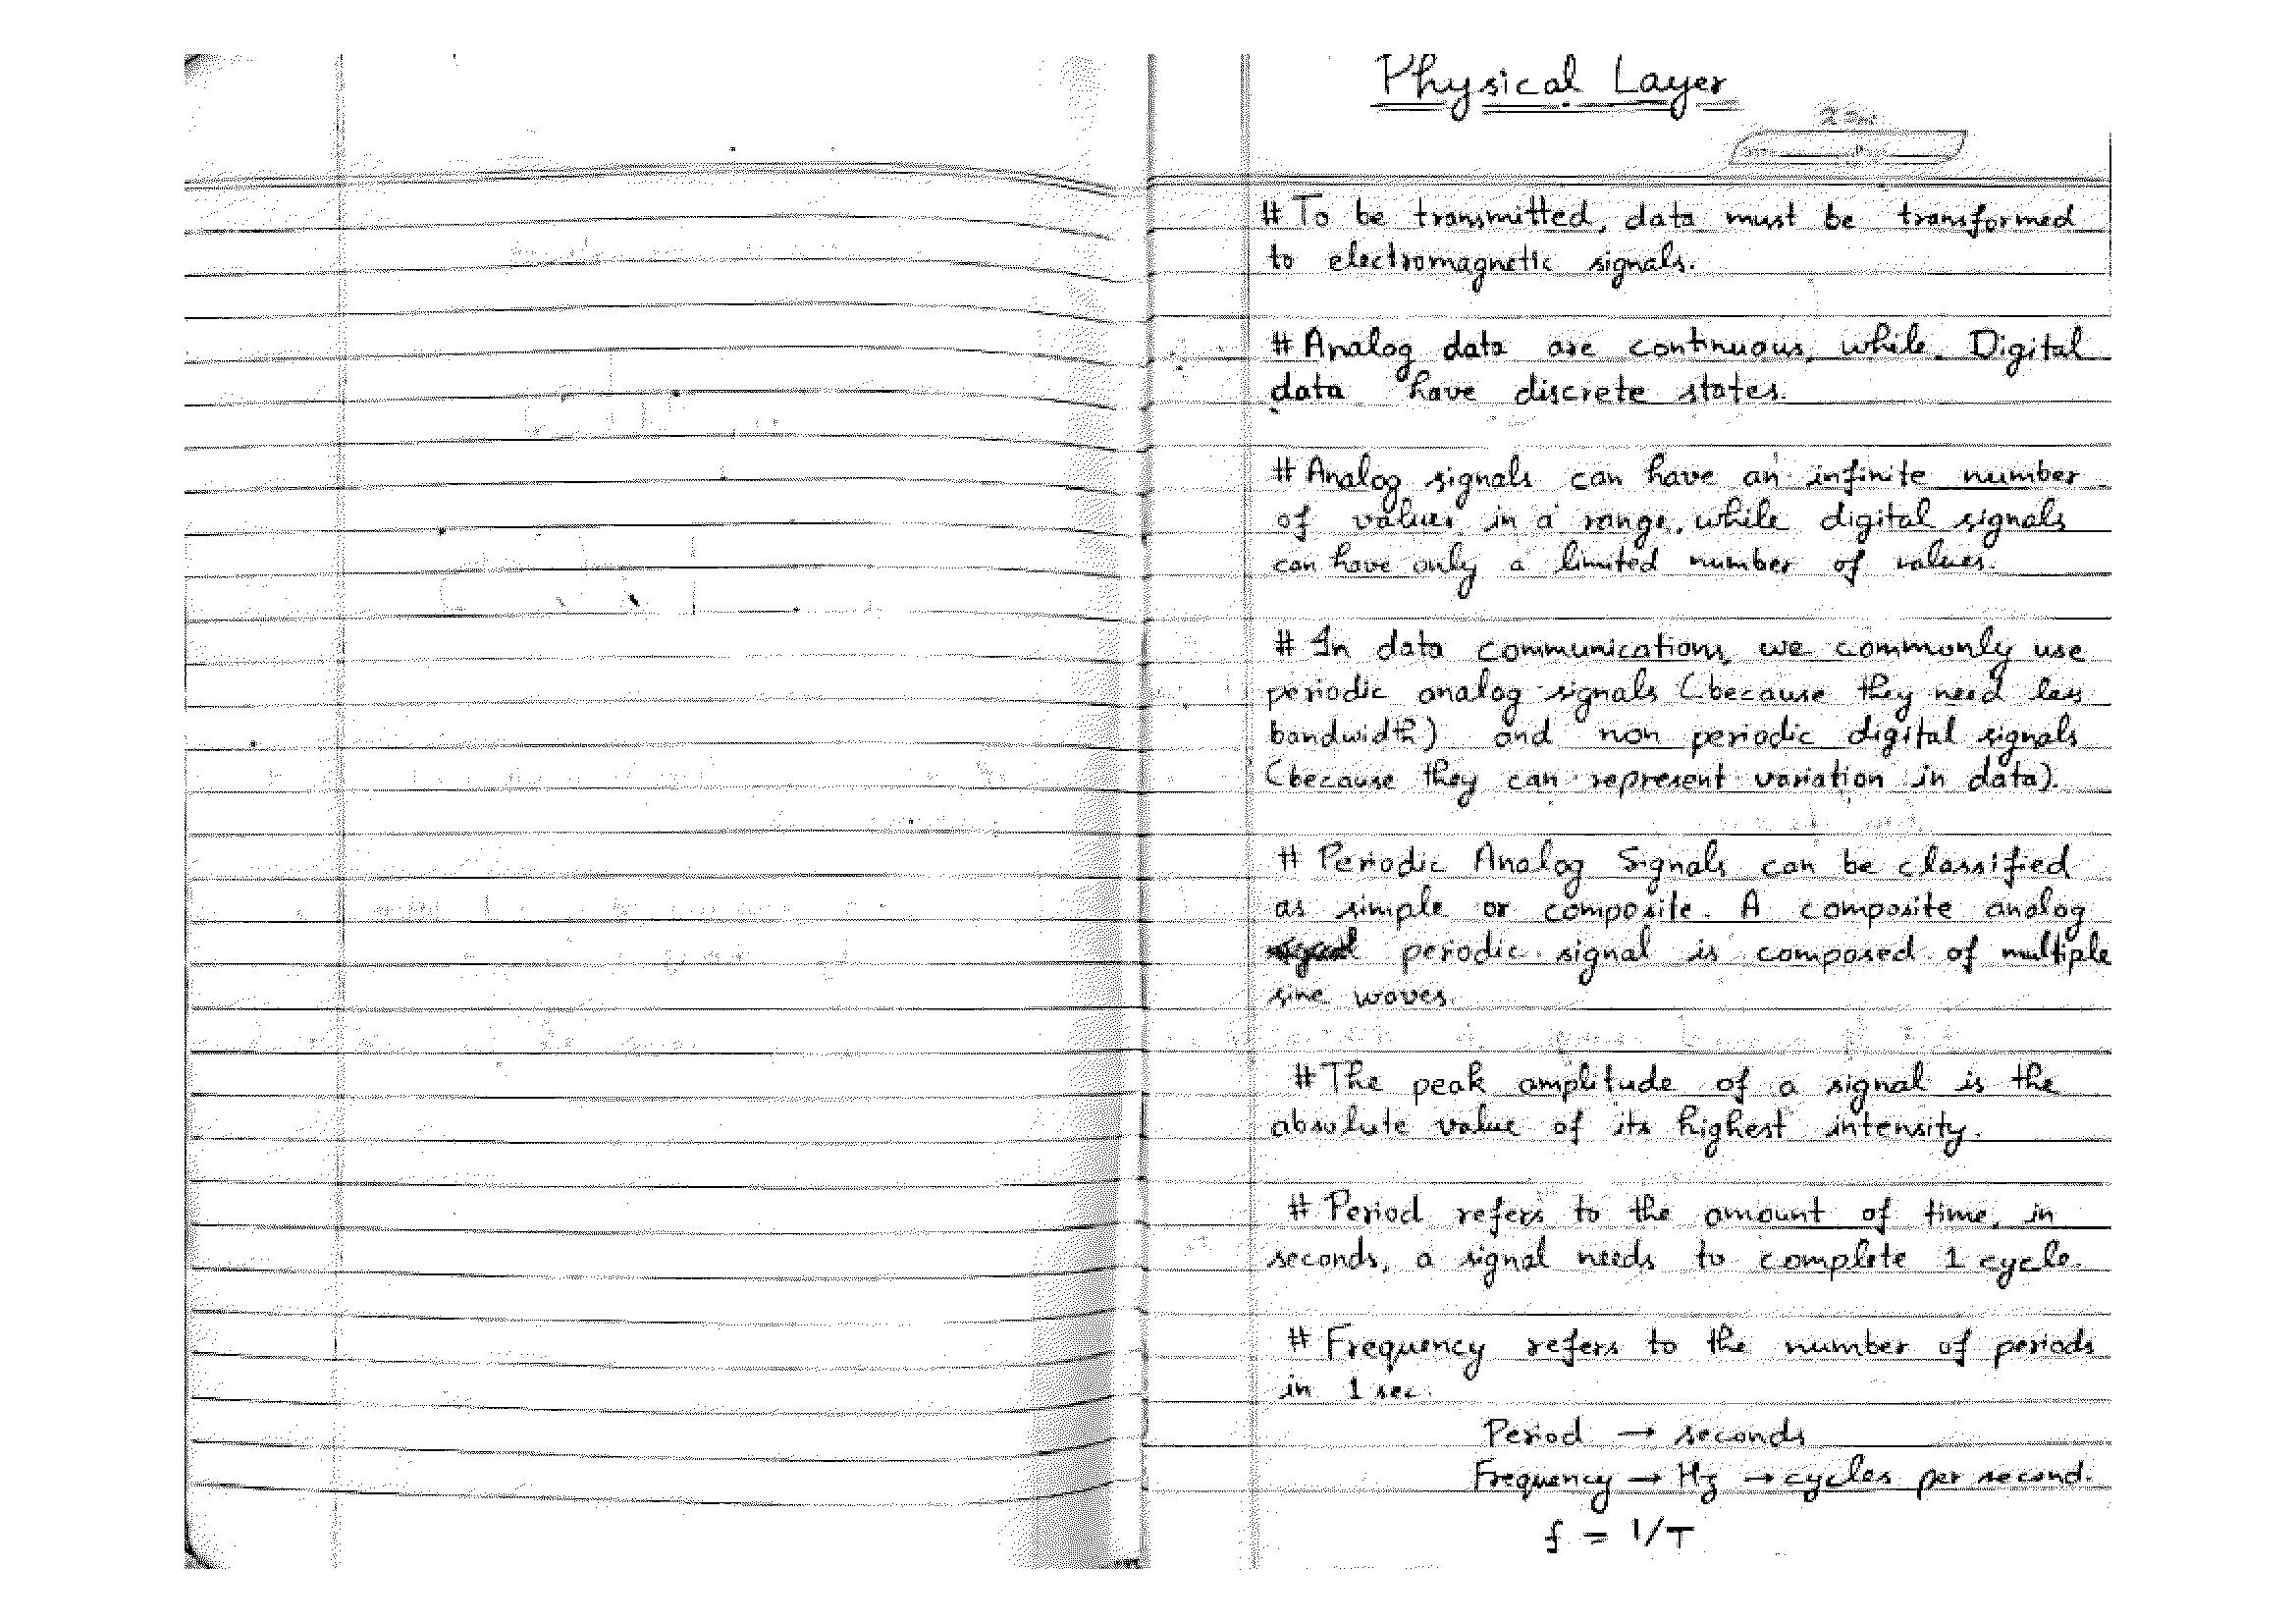 Physical Layer
# To be transmitted, data must be transformed
to electromagnetic signals.
# Analog data are continuous, while Digital
data have discrete states.
# Analog signals can have an infinite number
of values in a range, while digital signals
can have only a limited number of values.
# In data communications, we commonly use
periodic analog signals (because they need less
bandwidth) and non periodic digital signals
(because they can represent variation in data).
# Periodic Analog Signals can be classified
as simple or composite. A composite analog
periodic signal is composed of multiple
sine waves.
# The peak amplitude of a signal is the
absolute value of its highest intensity.
# Period refers to the amount of time, in
seconds, a signal needs to complete 1 cycle.
# Frequency refers to the number of periods
in 1 sec.
Period → seconds
Frequency → Hz → cycles per second.
f = 1/T